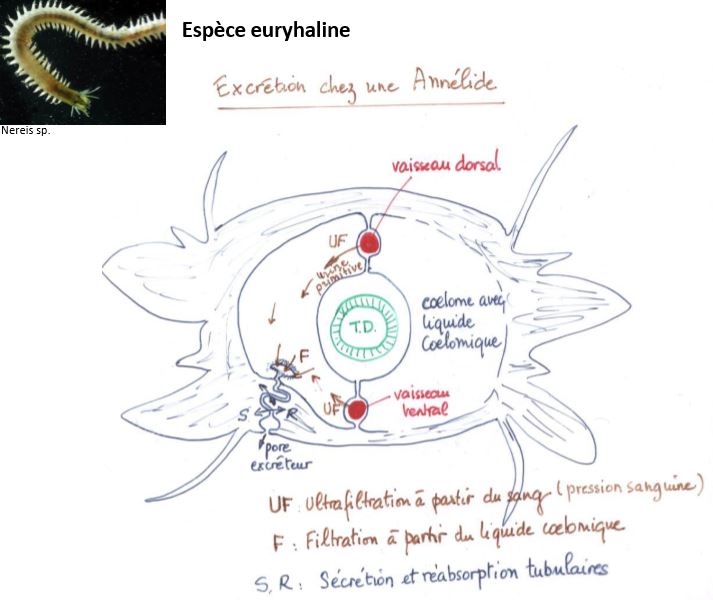 Espèce euryhaline
Nereis sp.
Excrétion chez une Annélide
vaisseau dorsal
UF
urine
primitive
T.D.
coelome avec
liquide
coelomique
F
S
R
UF
vaisseau
ventral
pore
excréteur
UF : Ultrafiltration à partir du sang (pression sanguine)
F : Filtration à partir du liquide coelomique
S, R : Sécrétion et réabsorption tubulaires